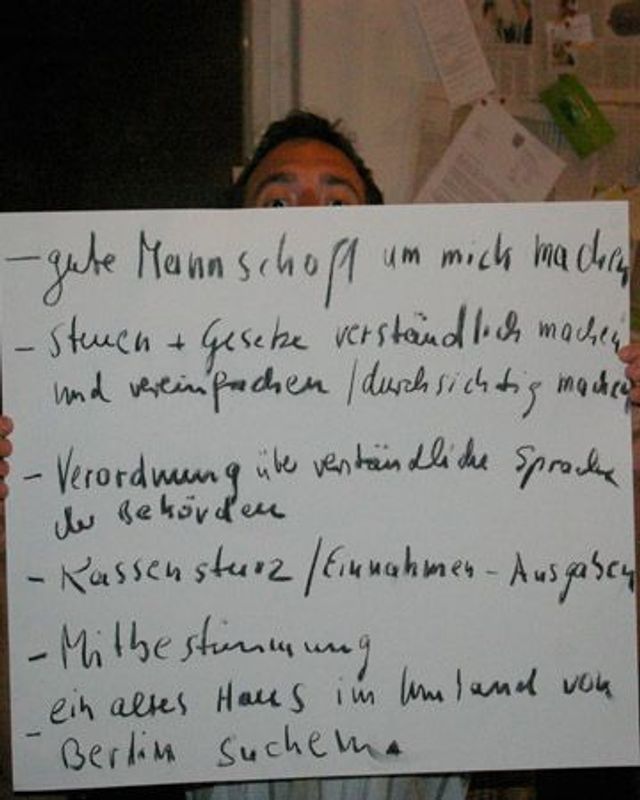 - gute Mannschaft um mich machen
- Steuern + Gesetze verständlich machen
und vereinfachen / durchsichtig machen
- Verordnung über verständliche Sprache
der Behörden
- Kassensturz / Einnahmen - Ausgaben
- Mitbestimmung
- ein altes Haus im Umland von
Berlin suchen.